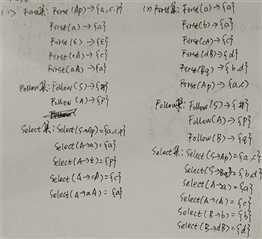 First集: First(Ap)→{a,c,p}
First(a)→{a}
First(ε)→{ε}
First(cA)→{c}
First(aA)→{a}
Follow集: Follow(S)→{#}
Follow(A)→{p}
Select集: Select(S→Ap)={a,c,p}
Select(A→a)={a}
Select(A→ε)={p}
Select(A→cA)={c}
Select(A→aA)={a}
First集: First(a)→{a}
First(b)→{b}
First(cA)→{c}
First(dB)→{d}
First(Bq)→{b,d}
First(Ap)→{a,c}
Follow集: Follow(S)→{#}
Follow(A)→{p}
Follow(B)→{q}
Select集: Select(S→Ap)={a,c}
Select(S→Bq)={b,d}
Select(A→a)={a}
Select(A→cA)={c}
Select(B→b)={b}
Select(B→dB)={d}